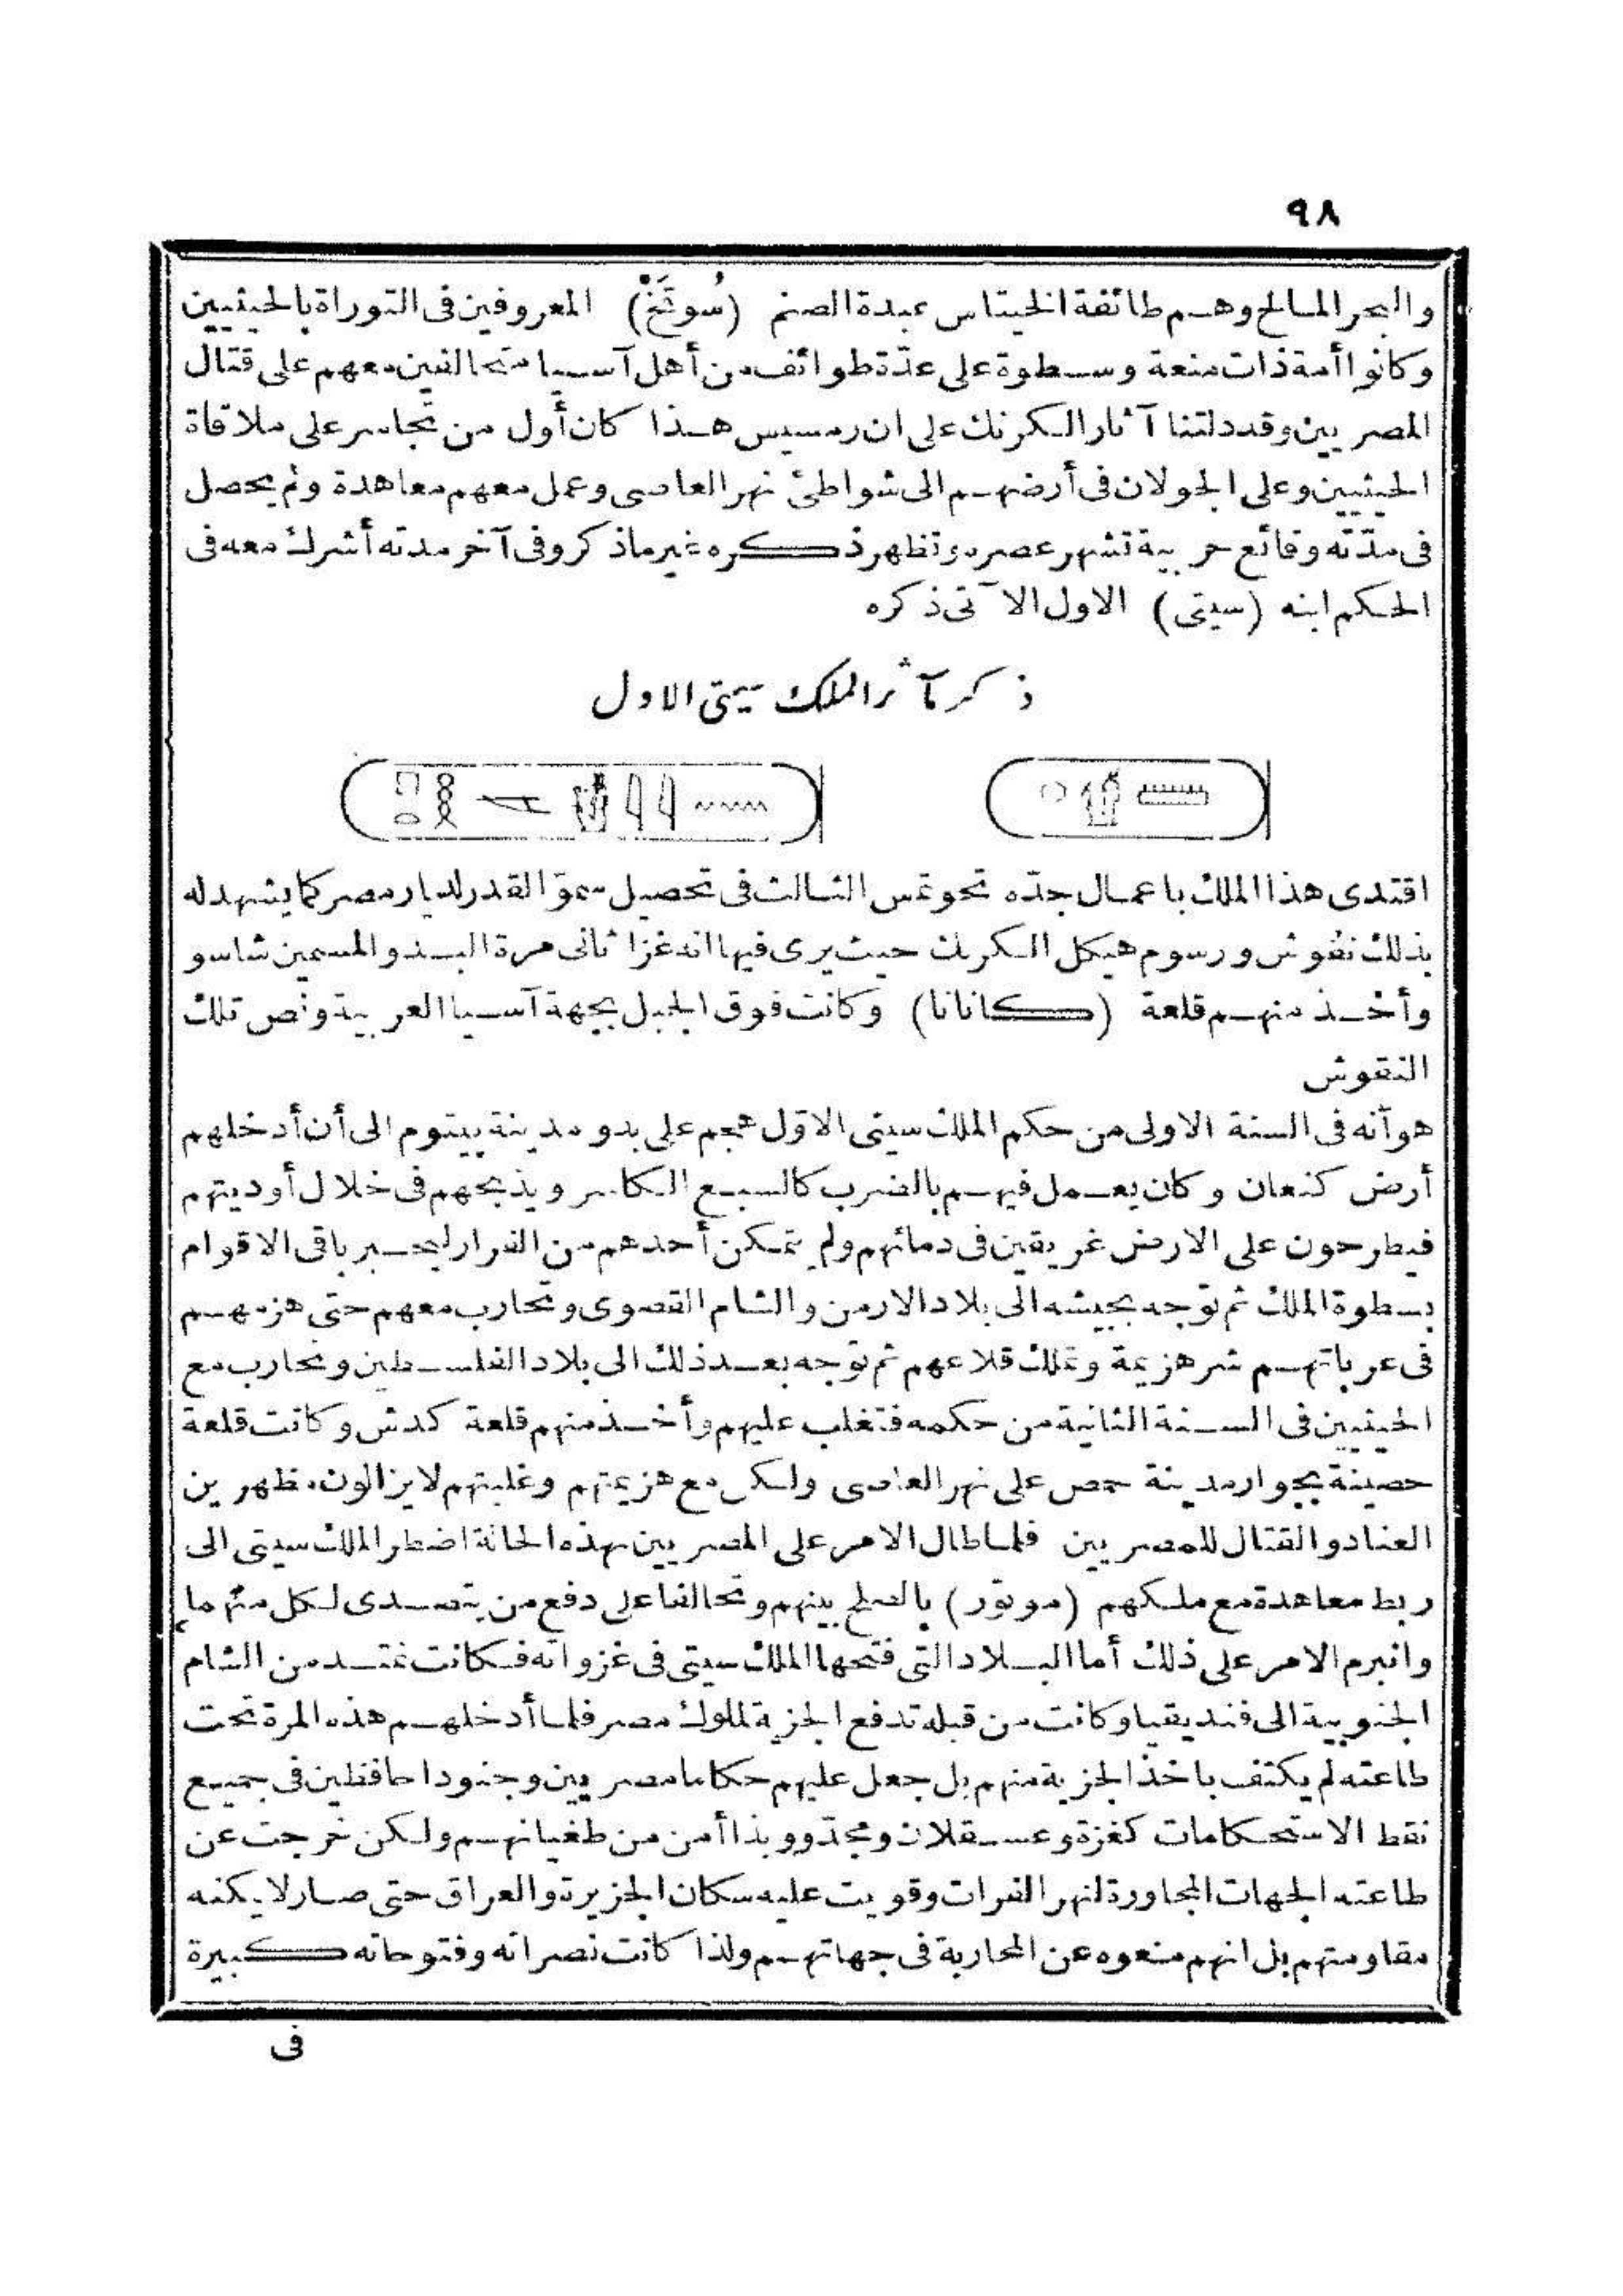 ٩٨
والبحر المالح وهم طائفة الخيتاس عبدة الصنم (سُوتَخْ) المعروفين فى التوراة بالحيثيين
وكانوا أمة ذات منعة وسطوة على عدّة طوائف من أهل آسيا متحالفين معهم على قتال
المصريين وقد دلتنا آثار الكرنك على ان رمسيس هذا كان أول من تجاسر على ملاقاة
الحيثيين وعلى الجولان فى أرضهم الى شواطئ نهر العاصى وعمل معهم معاهدة ولم يحصل
فى مدّته وقائع حربية تشهر عصره وتظهر ذكره غير ماذكر وفى آخر مدته أشرك معه فى
الحكم ابنه (سيتى) الاول الآتى ذكره
ذكر مآثر الملك سيتى الاول
اقتدى هذا الملك باعمال جدّه تحوتمس الثالث فى تحصيل سموّ القدر لديار مصر كما يشهد له
بذلك نقوش ورسوم هيكل الكرنك حيث يرى فيها انه غزا ثانى مرة البدو المسمين شاسو
وأخذ منهم قلعة (كانانا) وكانت فوق الجبل بجهة آسيا العربية ونص تلك
النقوش
هو أنه فى السنة الاولى من حكم الملك سيتى الاوّل هجم على بدو مدينة بيتوم الى أن أدخلهم
أرض كنعان وكان يعمل فيهم بالضرب كالسبع الكاسر ويذبحهم فى خلال أوديتهم
فيطرحون على الارض غريقين فى دمائهم ولم يتمكن أحدهم من الفرار ليخبر باقى الاقوام
بسطوة الملك ثم توّجه بجيشه الى بلاد الارمن والشام القصوى وتحارب معهم حتى هزمهم
فى عرباتهم شر هزيمة وتملك قلاعهم ثم توّجه بعد ذلك الى بلاد الفلسطين وتحارب مع
الحيثيين فى السنة الثانية من حكمه فتغلب عليهم وأخذ منهم قلعة كدش وكانت قلعة
حصينة بجوار مدينة حمص على نهر العاصى ولكن مع هزيمتهم وغلبتهم لايزالون مظهرين
العناد والقتال للمصريين فلما طال الامر على المصريين بهذه الحالة اضطر الملك سيتى الى
ربط معاهدة مع ملكهم (موتور) بالصلح بينهم وتحالفا على دفع من يتصدى لكل منهما
وانبرم الامر على ذلك أما البلاد التى فتحها الملك سيتى فى غزواته فكانت تمتد من الشام
الجنوبية الى فنديقيا وكانت من قبله تدفع الجزية لملوك مصر فلما أدخلهم هذه المرة تحت
طاعته لم يكتف باخذ الجزية منهم بل جعل عليهم حكاما مصريين وجنودا محافظين فى جميع
نقط الاستحكامات كغزة وعسقلان ومجدّو وبذا أمن من طغيانهم ولكن خرجت عن
طاعته الجهات المجاورة لنهر الفرات وقويت عليه سكان الجزيرة والعراق حتى صار لايمكنه
مقاومتهم بل انهم منعوه عن المحاربة فى جهاتهم ولذا كانت نصراته وفتوحاته كبيرة
فى